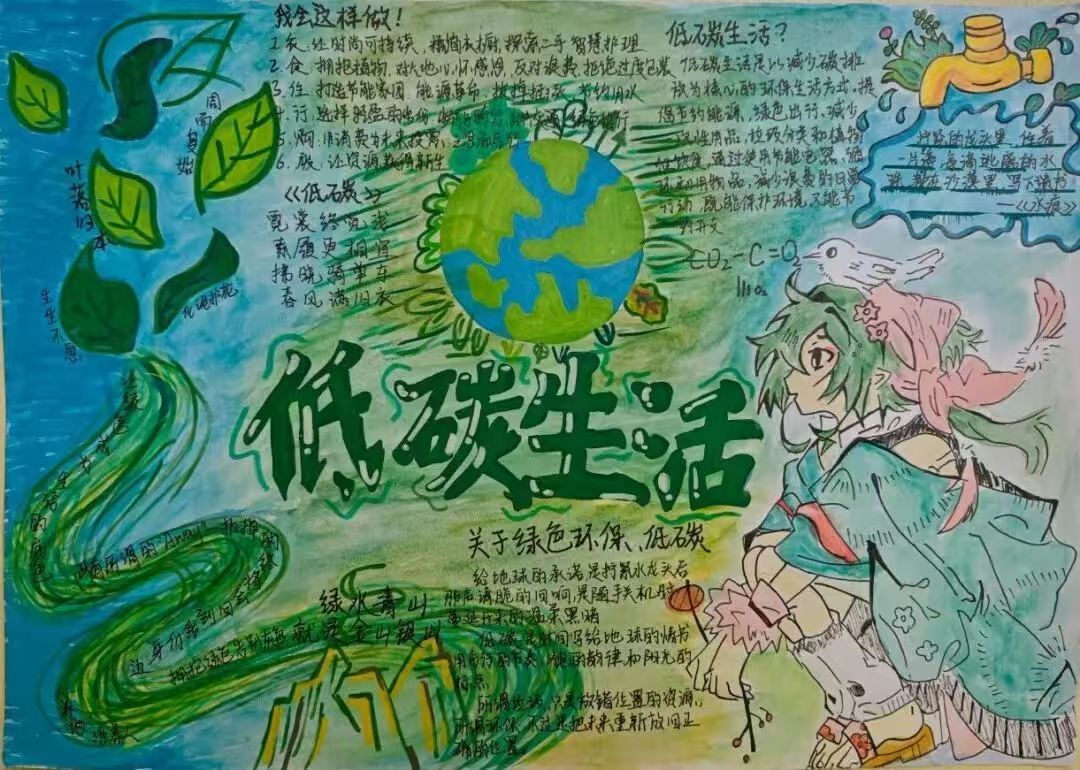 我会这样做！
1. 衣，让时尚可持续，精简衣橱，探索二手，智慧护理
2. 食 拥抱植物，对大地心怀感恩，反对浪费，拒绝过度包装
3. 住 打造节能家园，能源革命，节约用水
4. 行 选择
5. 购：消费为未来投票
6. 废，让资源获得新生
《低碳》
霓裳终觉浅
素履更相宜
拂晓骑单车
春风满旧衣
低碳生活？
低碳生活是以减少碳排
放为核心的环保生活方式，提
倡节约能源、绿色出行、减少
一次性用品，垃圾分类和植物
性饮食，通过使用节能电器、循
环利用物品，减少浪费的日常
行动，既能保护环境，又能节
约开支
CO2-C=O2
拧紧的龙头里，住着
一片海，每滴逃离的水
都在沙漠里，写下
—《水痕》
周而复始
叶落归本
生生不息
化泥护花
低碳生活
绿水青山
就是金山银山
关于绿色环保、低碳
给地球的承诺，是拧紧水龙头后
那声清脆的回响，是随手关机时
蔓延开来的温柔黑暗
低碳，是时间写给地球的情书
用步行的节奏，的韵律和阳光的
标点
所谓垃圾，只是放错位置的资源，
所谓环保，不过是把未来重新放回正
确的位置。